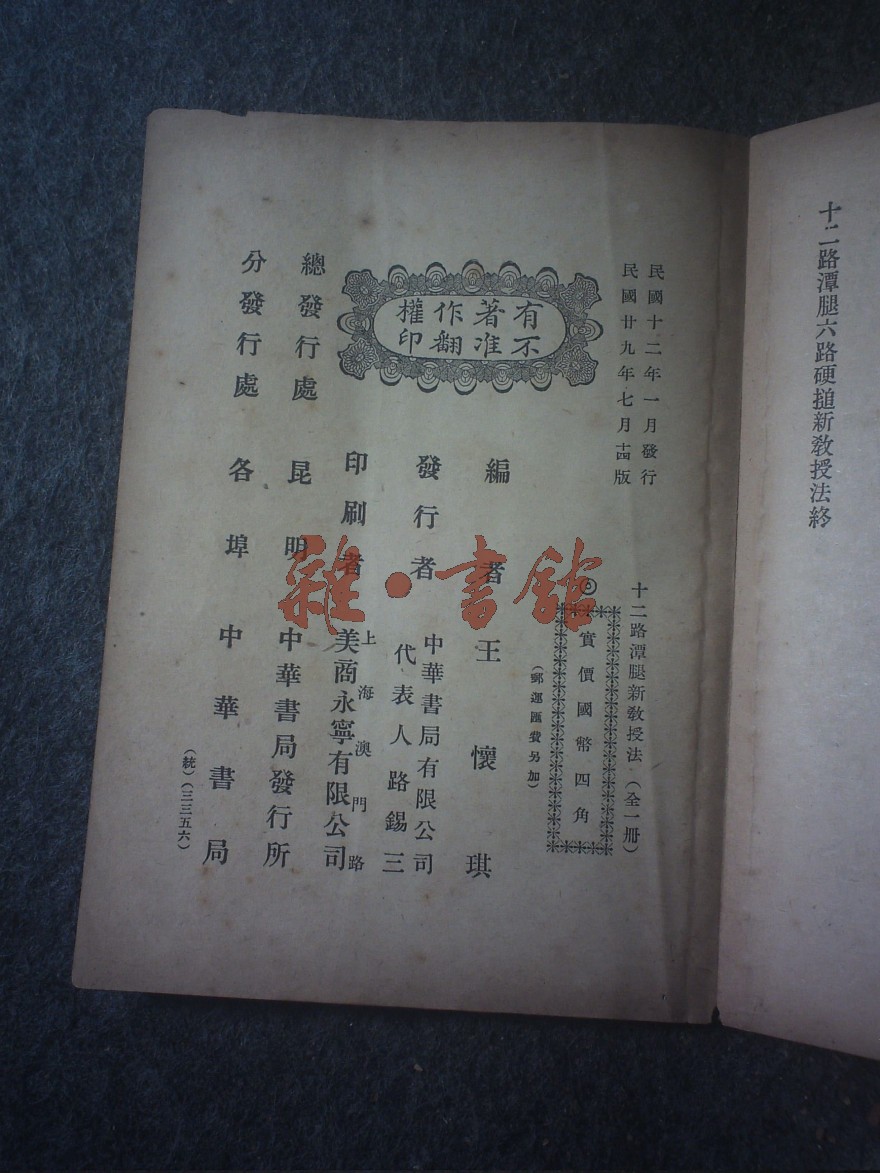 十二路潭腿六路硬搥新教授法終
民國十二年一月發行
民國廿九年七月十四版
十二路潭腿新教授法（全一冊）
◎實價國幣四角
（郵運匯費另加）
有著作權
不准翻印
編者 王懷琪
發行者 中華書局有限公司
代表人路錫三
印刷者 上海澳門路
美商永寧有限公司
總發行處 昆明 中華書局發行所
分發行處 各埠 中華書局
（統）（三三五六）
雜·書館